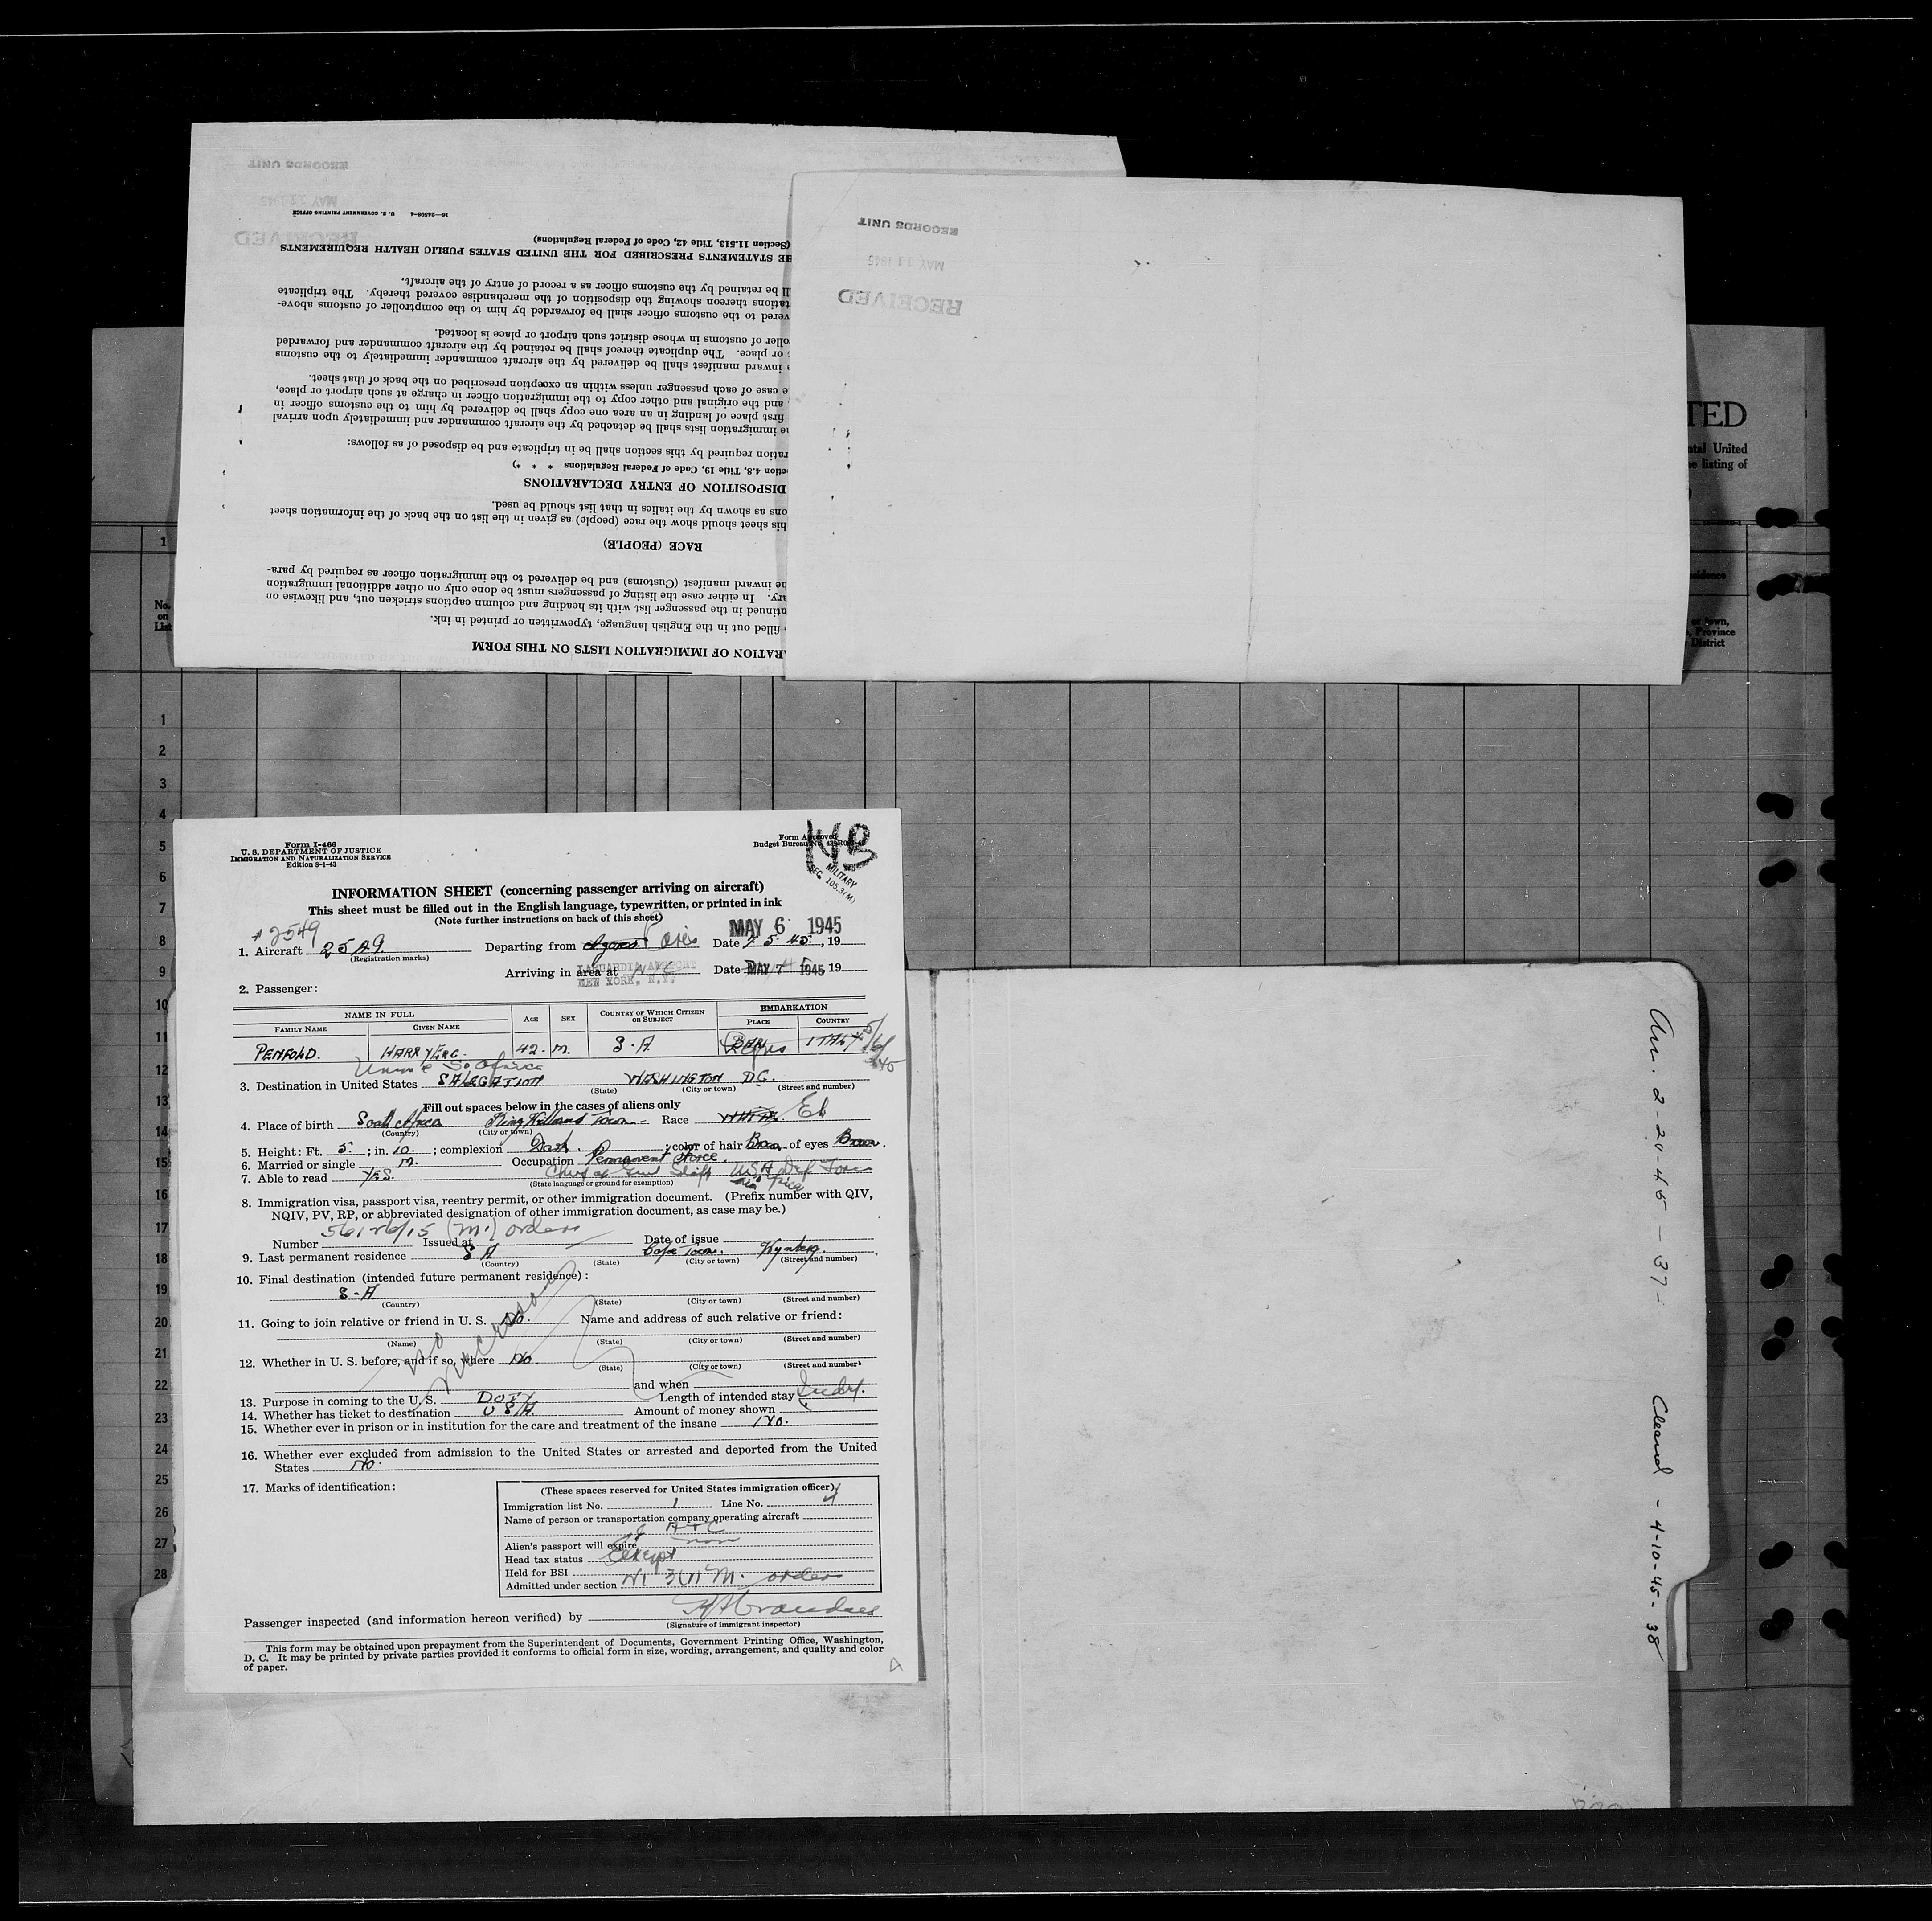 RECORDS UNIT
MAY 11 1945
RECEIVED
16—24598-4 U. S. GOVERNMENT PRINTING OFFICE
(Section 11.513, Title 42, Code of Federal Regulations)
HE STATEMENTS PRESCRIBED FOR THE UNITED STATES PUBLIC HEALTH REQUIREMENTS
ll be retained by the customs officer as a record of entry of the aircraft.
tations thereon showing the disposition of the merchandise covered thereby. The triplicate
vered to the customs officer shall be forwarded by him to the comptroller of customs above-
oller of customs in whose district such airport or place is located.
t or place. The duplicate thereof shall be retained by the aircraft commander and forwarded
e inward manifest shall be delivered by the aircraft commander immediately to the customs
e case of each passenger unless within an exception prescribed on the back of that sheet.
and the original and other copy to the immigration officer in charge at such airport or place,
first place of landing in an area one copy shall be delivered by him to the customs officer in
he immigration lists shall be detached by the aircraft commander and immediately upon arrival
ration required by this section shall be in triplicate and be disposed of as follows:
ction 4.8, Title 19, Code of Federal Regulations * * *)
DISPOSITION OF ENTRY DECLARATIONS
ons as shown by the italics in that list should be used.
his sheet should show the race (people) as given in the list on the back of the information sheet
RACE (PEOPLE)
he inward manifest (Customs) and be delivered to the immigration officer as required by para-
ry. In either case the listing of passengers must be done only on other additional immigration
ntinued in the passenger list with its heading and column captions stricken out, and likewise on
filled out in the English language, typewritten or printed in ink.
RATION OF IMMIGRATION LISTS ON THIS FORM
RECORDS UNIT
MAY 11 1945
RECEIVED
TED
ntal United
e listing of
1
No. on List
sidence
or town,
, Province
District
1
2
3
4
5
6
7
8
9
10
11
12
13
14
15
16
17
18
19
20
21
22
23
24
25
26
27
28
Form I-466
U. S. DEPARTMENT OF JUSTICE
IMMIGRATION AND NATURALIZATION SERVICE
Edition 8-1-43
Form Approved
Budget Bureau No.
MILITARY
SEC. 105.3(M)
INFORMATION SHEET (concerning passenger arriving on aircraft)
This sheet must be filled out in the English language, typewritten, or printed in ink
(Note further instructions on back of this sheet)
#2549
MAY 6 1945
1. Aircraft 25A9 Departing from Date 7.5.45, 19
(Registration marks)
Arriving in area at LAGUARDIA AIRPORT NEW YORK, N.Y. Date MAY 7 1945 19
2. Passenger:
NAME IN FULL AGE SEX COUNTRY OF WHICH CITIZEN OR SUBJECT EMBARKATION
FAMILY NAME GIVEN NAME PLACE COUNTRY
PENFOLD. HARRY ERIC. 42. M. S.A. BARI ITALY
Union So. Africa
3. Destination in United States SALEGATION WASHINGTON D.C.
(State) (City or town) (Street and number)
Fill out spaces below in the cases of aliens only
4. Place of birth South Africa King Williams Town Race WHITE.
(Country) (City or town)
5. Height: Ft. 5; in. 10.; complexion Dark.; color of hair Brown of eyes Brown.
6. Married or single M. Occupation Permanent Force.
7. Able to read YES. Chief of Genl Staff
(State language or ground for exemption)
8. Immigration visa, passport visa, reentry permit, or other immigration document. (Prefix number with QIV,
NQIV, PV, RP, or abbreviated designation of other immigration document, as case may be.)
Number Issued at Date of issue
9. Last permanent residence S A Cape Town. Wynberg.
(Country) (State) (City or town) (Street and number)
10. Final destination (intended future permanent residence):
S-A.
(Country) (State) (City or town) (Street and number)
11. Going to join relative or friend in U. S. No. Name and address of such relative or friend:
(Name) (State) (City or town) (Street and number)
12. Whether in U. S. before, and if so, where No.
(State) (City or town) (Street and number)
and when
13. Purpose in coming to the U. S. DUTY Length of intended stay Indef.
14. Whether has ticket to destination USA. Amount of money shown
15. Whether ever in prison or in institution for the care and treatment of the insane No.
16. Whether ever excluded from admission to the United States or arrested and deported from the United
States No.
17. Marks of identification:
(These spaces reserved for United States immigration officer)
Immigration list No. 1 Line No. 4
Name of person or transportation company operating aircraft
ATC
Alien's passport will expire
Head tax status Exempt
Held for BSI
Admitted under section orders
Passenger inspected (and information hereon verified) by
(Signature of immigrant inspector)
This form may be obtained upon prepayment from the Superintendent of Documents, Government Printing Office, Washington,
D. C. It may be printed by private parties provided it conforms to official form in size, wording, arrangement, and quality and color
of paper.
Arr. 2-20-45 - 37- Cleared - 4-10-45 - 38